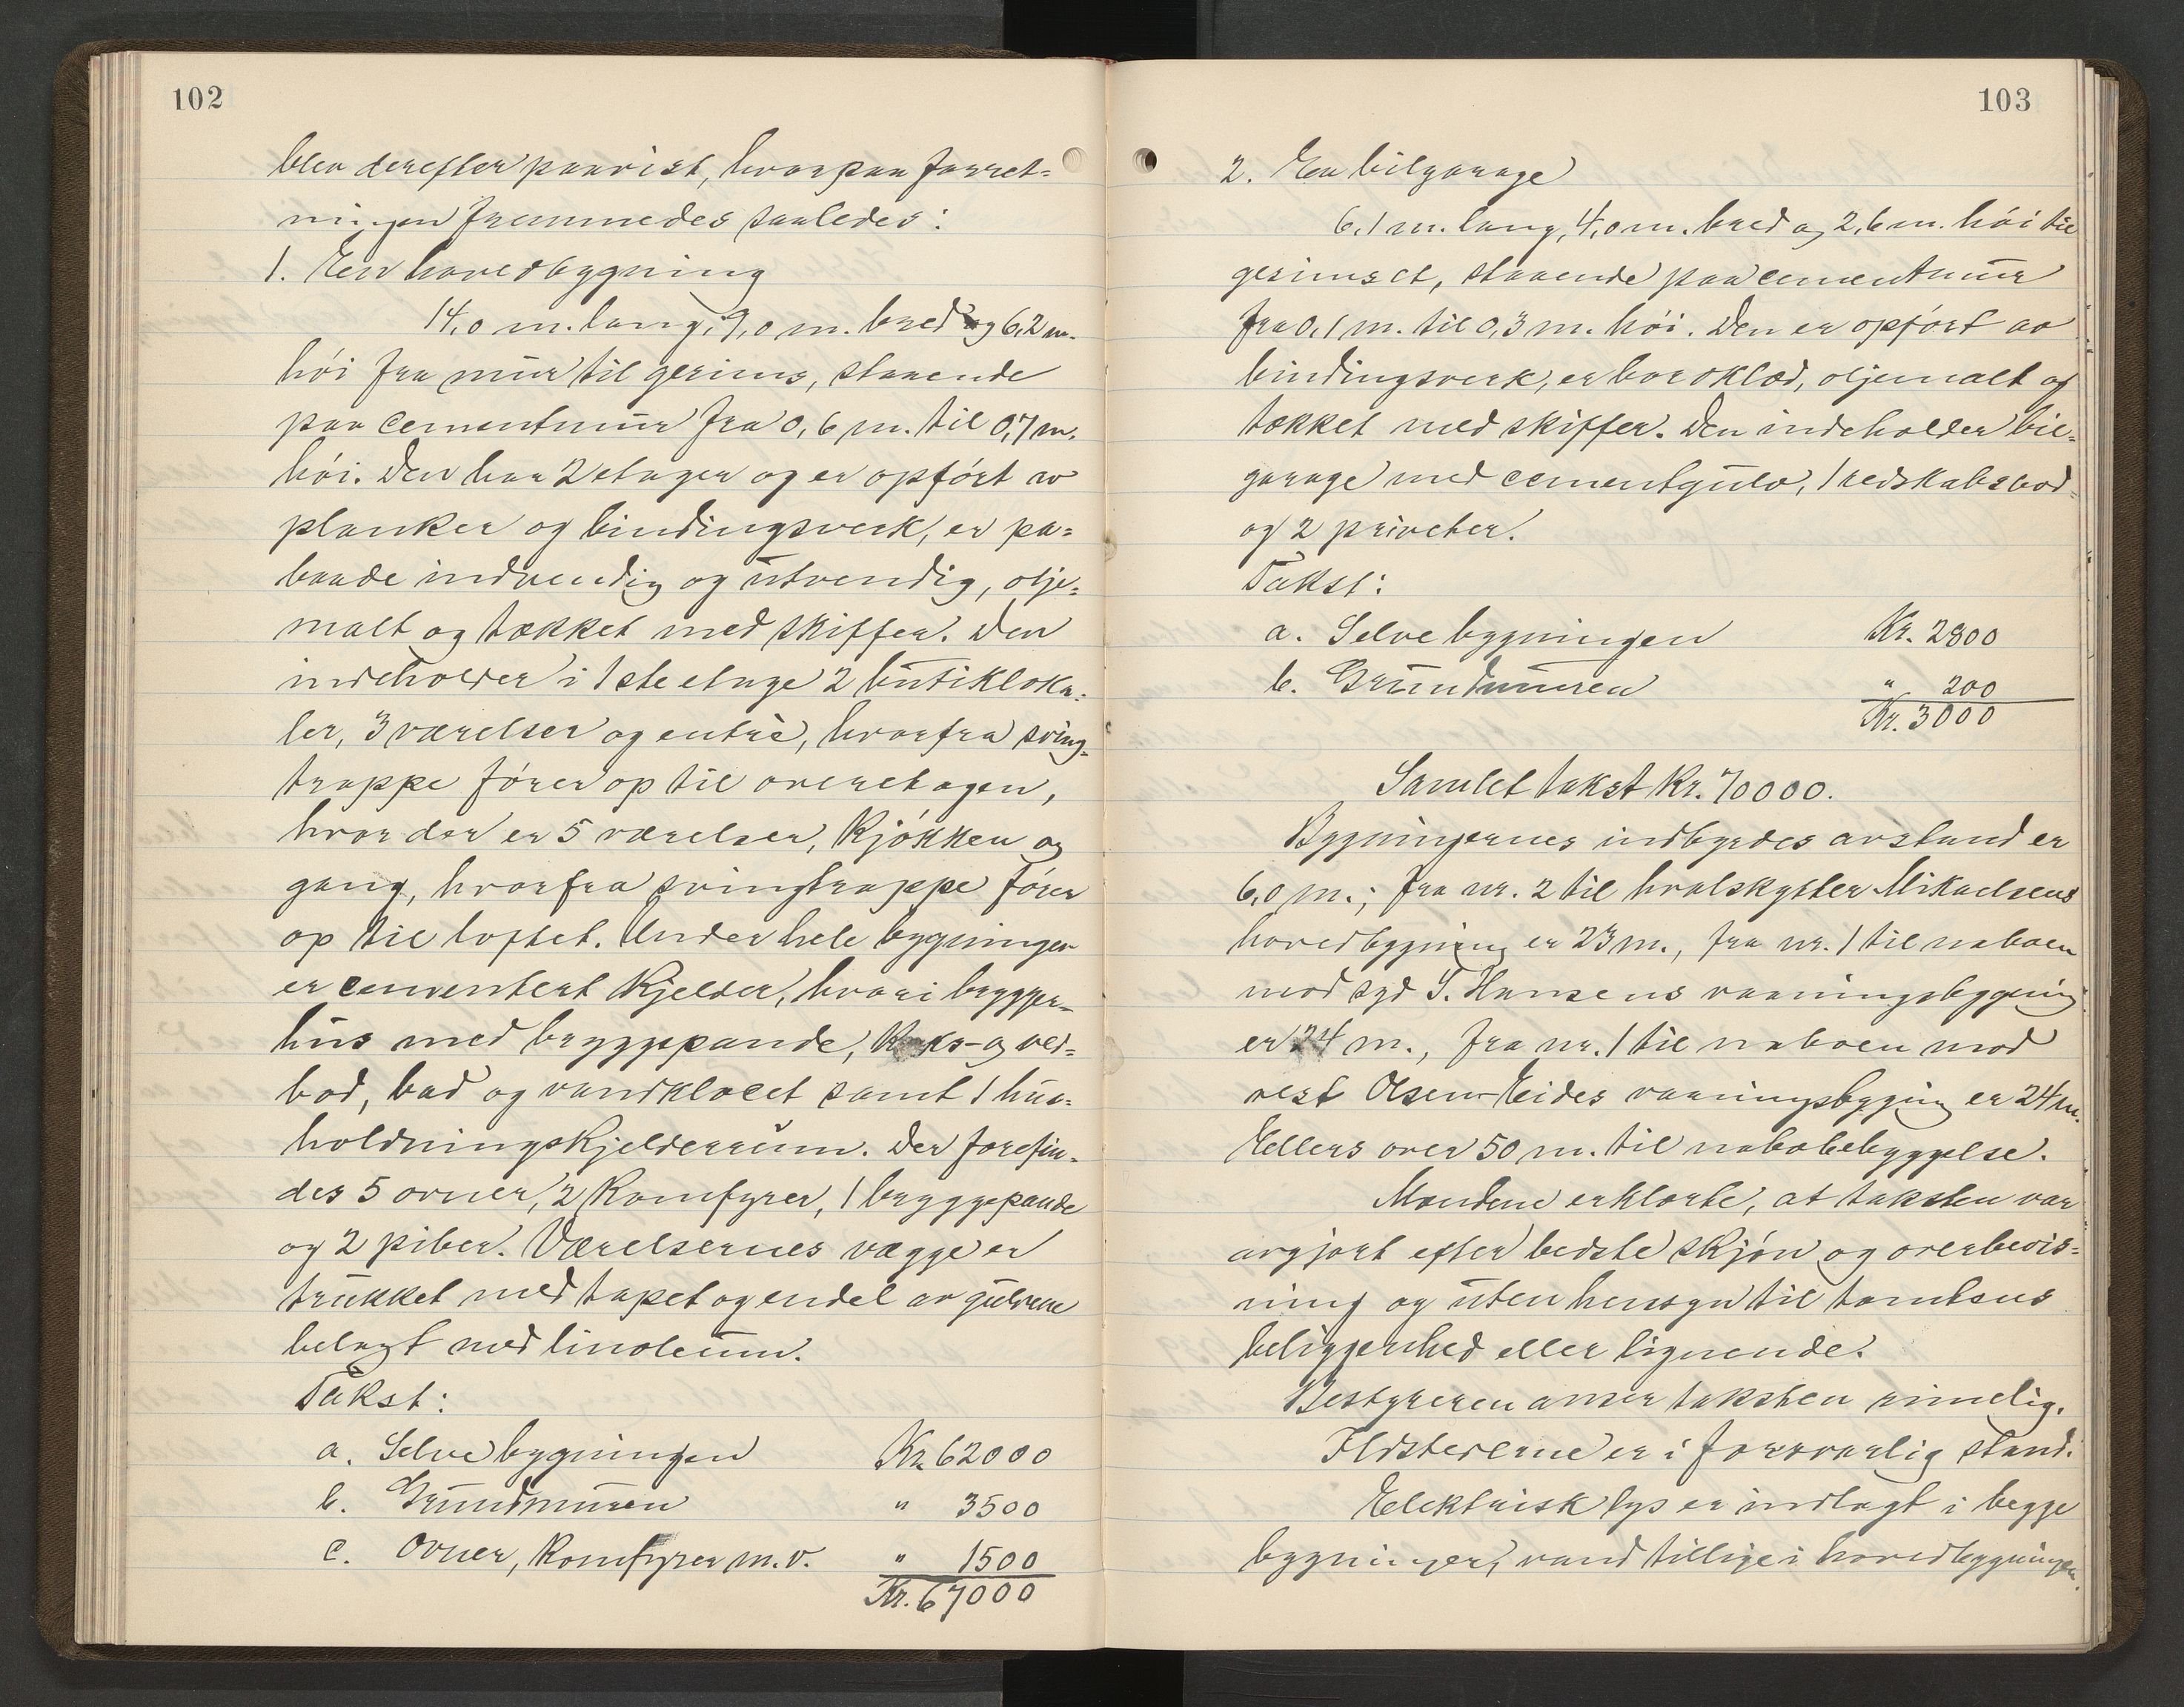 102
blev derefter paavist, hvorpaa forret-
ningen fremmedes saaledes:
1. En hovedbygning
14,0 m. lang, 9,0 m. bred og 6,2 m.
høi fra mur til gesims, staaende
paa cementmur fra 0,6 m. til 0,7 m.
høi. Den har 2 etager og er opført av
planker og bindingsverk, er pa-
baade indvendig og utvendig, olje-
malt og tækket med skiffer. Den
indeholder i 1ste etage 2 butikloka-
ler, 3 værelser og entrè, hvorfra sving-
trappe fører op til overetagen,
hvor der er 5 værelser, kjøkken og
gang, hvorfra svingtrappe fører
op til loftet. Under hele bygningen
er cementert kjelder, hvori brygger-
hus med bryggepande, koks- og ved-
bod, bad og vandklocet samt 1 hus-
holdningskjelderrum. Der forefin-
des 5 ovner, 2 komfyrer, 1 bryggepande
og 2 piber. Værelsernes vægge er
trukket med tapet og endel av gulvene
belagt med linoleum.
Takst:
a. Selve bygningen Kr. 62000
b. Grundmuren " 3500
c. Ovner, komfyrer m.v. " 1500
Kr. 67000
103
2. En bilgarage
6,1 m. lang, 4,0 m. bred og 2,6 m. høi til
gesimset, staaende paa cementmur
fra 0,1 m. til 0,3 m. høi. Den er opført av
bindingsverk, er bordklæd, oljemalt og
tækket med skiffer. Den indeholder bil-
garage med cementgulv, 1 redskabsbod
og 2 priveter.
Takst:
a. Selve bygningen Kr. 2800
b. Grundmuren " 200
Kr. 3000
Samlet takst Kr. 70000.
Bygningernes indbyrdes avstand er
6,0 m.; fra nr. 2 til hvalskytter Mikaelsens
hovedbygning er 23 m., fra nr. 1 til naboen
mod syd S. Hansens vaaningsbygning
er 24 m., fra nr. 1 til naboen mod
vest Olsen-Eides vaaningsbygning er 24 m.
Ellers over 50 m. til nabobebyggelse.
Mændene erklærte, at taksten var
avgjort efter bedste skjøn og overbevis-
ning og uten hensyn til tomtens
beliggenhed eller lignende.
Bestyreren anser taksten rimelig.
Ildstederne er i forsvarlig stand.
Elektrisk lys er indlagt i begge
bygninger, vand tillige i hovedbygningen.